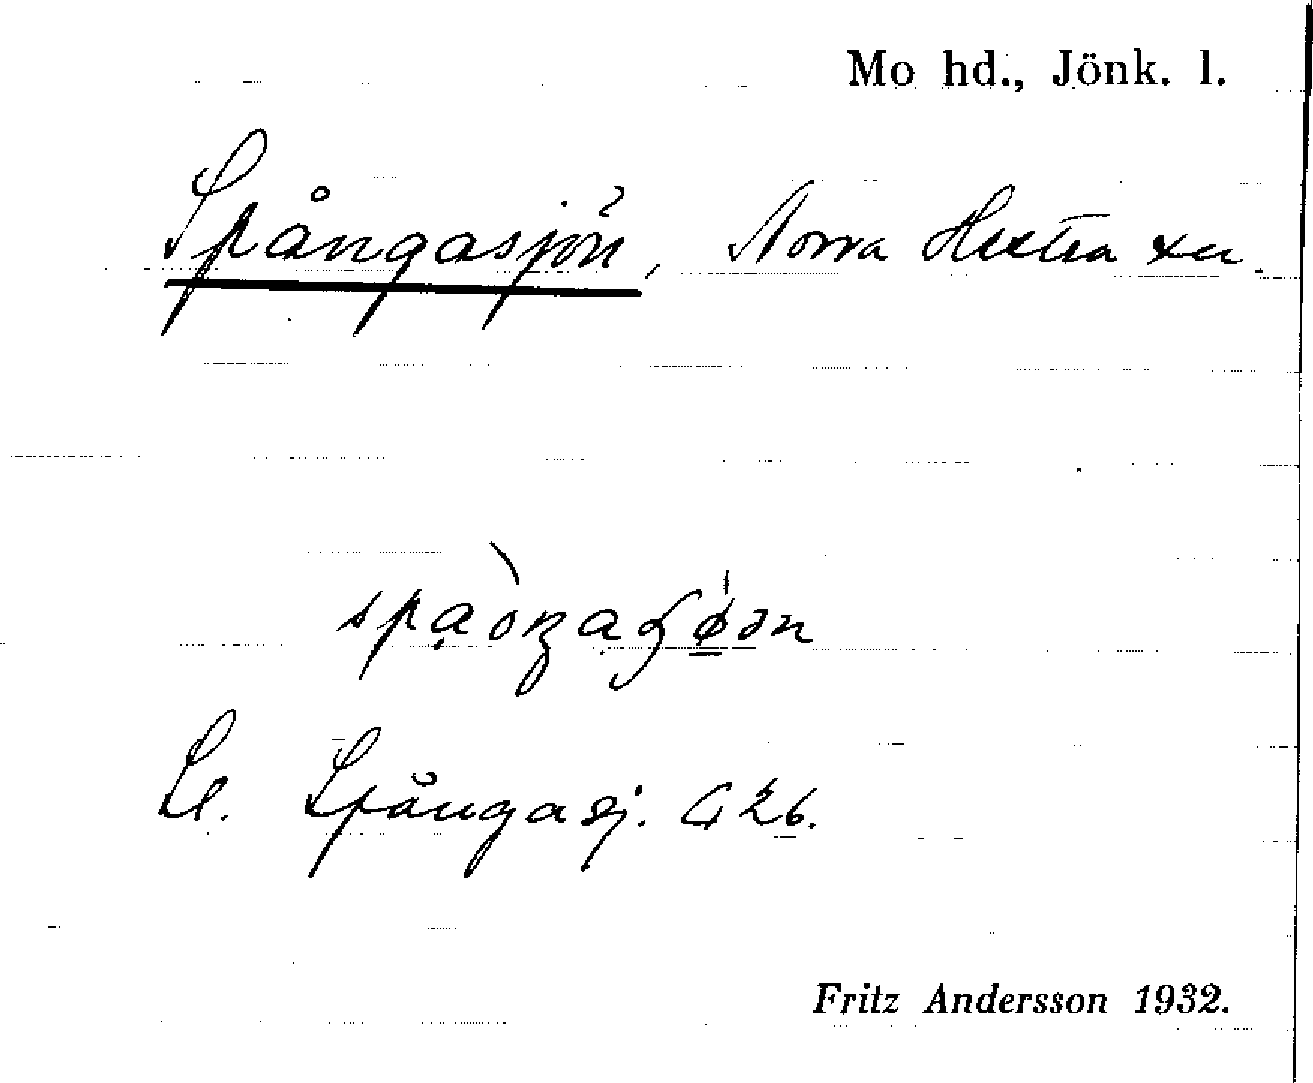 Mo hd., Jönk. l.
Spångasjön, Norra Hestra sn.
Ll. Spångasj. G 26.
Fritz Andersson 1932.